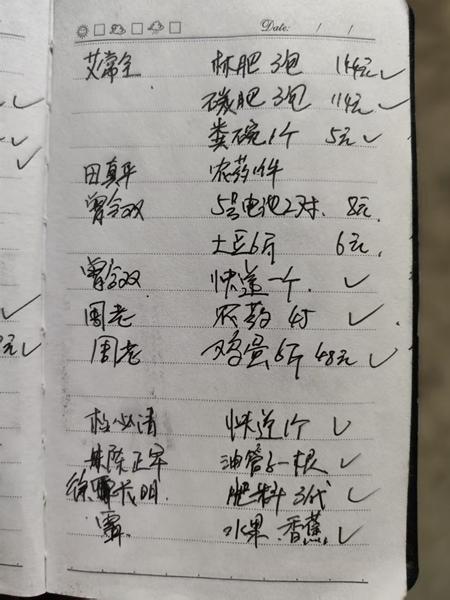 Date: / /
艾常全 林肥 3包 144元 ✓
磷肥 3包 114元 ✓
粪碗 1个 5元 ✓
田真平 农药1件
曾令双 5号电池2对. 8元.
土豆6斤 6元.
曾令双 快递一个. ✓
周老 农药 45 ✓
周老 鸡蛋6斤 48元 ✓
必清 快递1个 ✓
陈正军 油管子一根 ✓
徐长明 肥料3代 ✓
覃 水果.香蕉. ✓